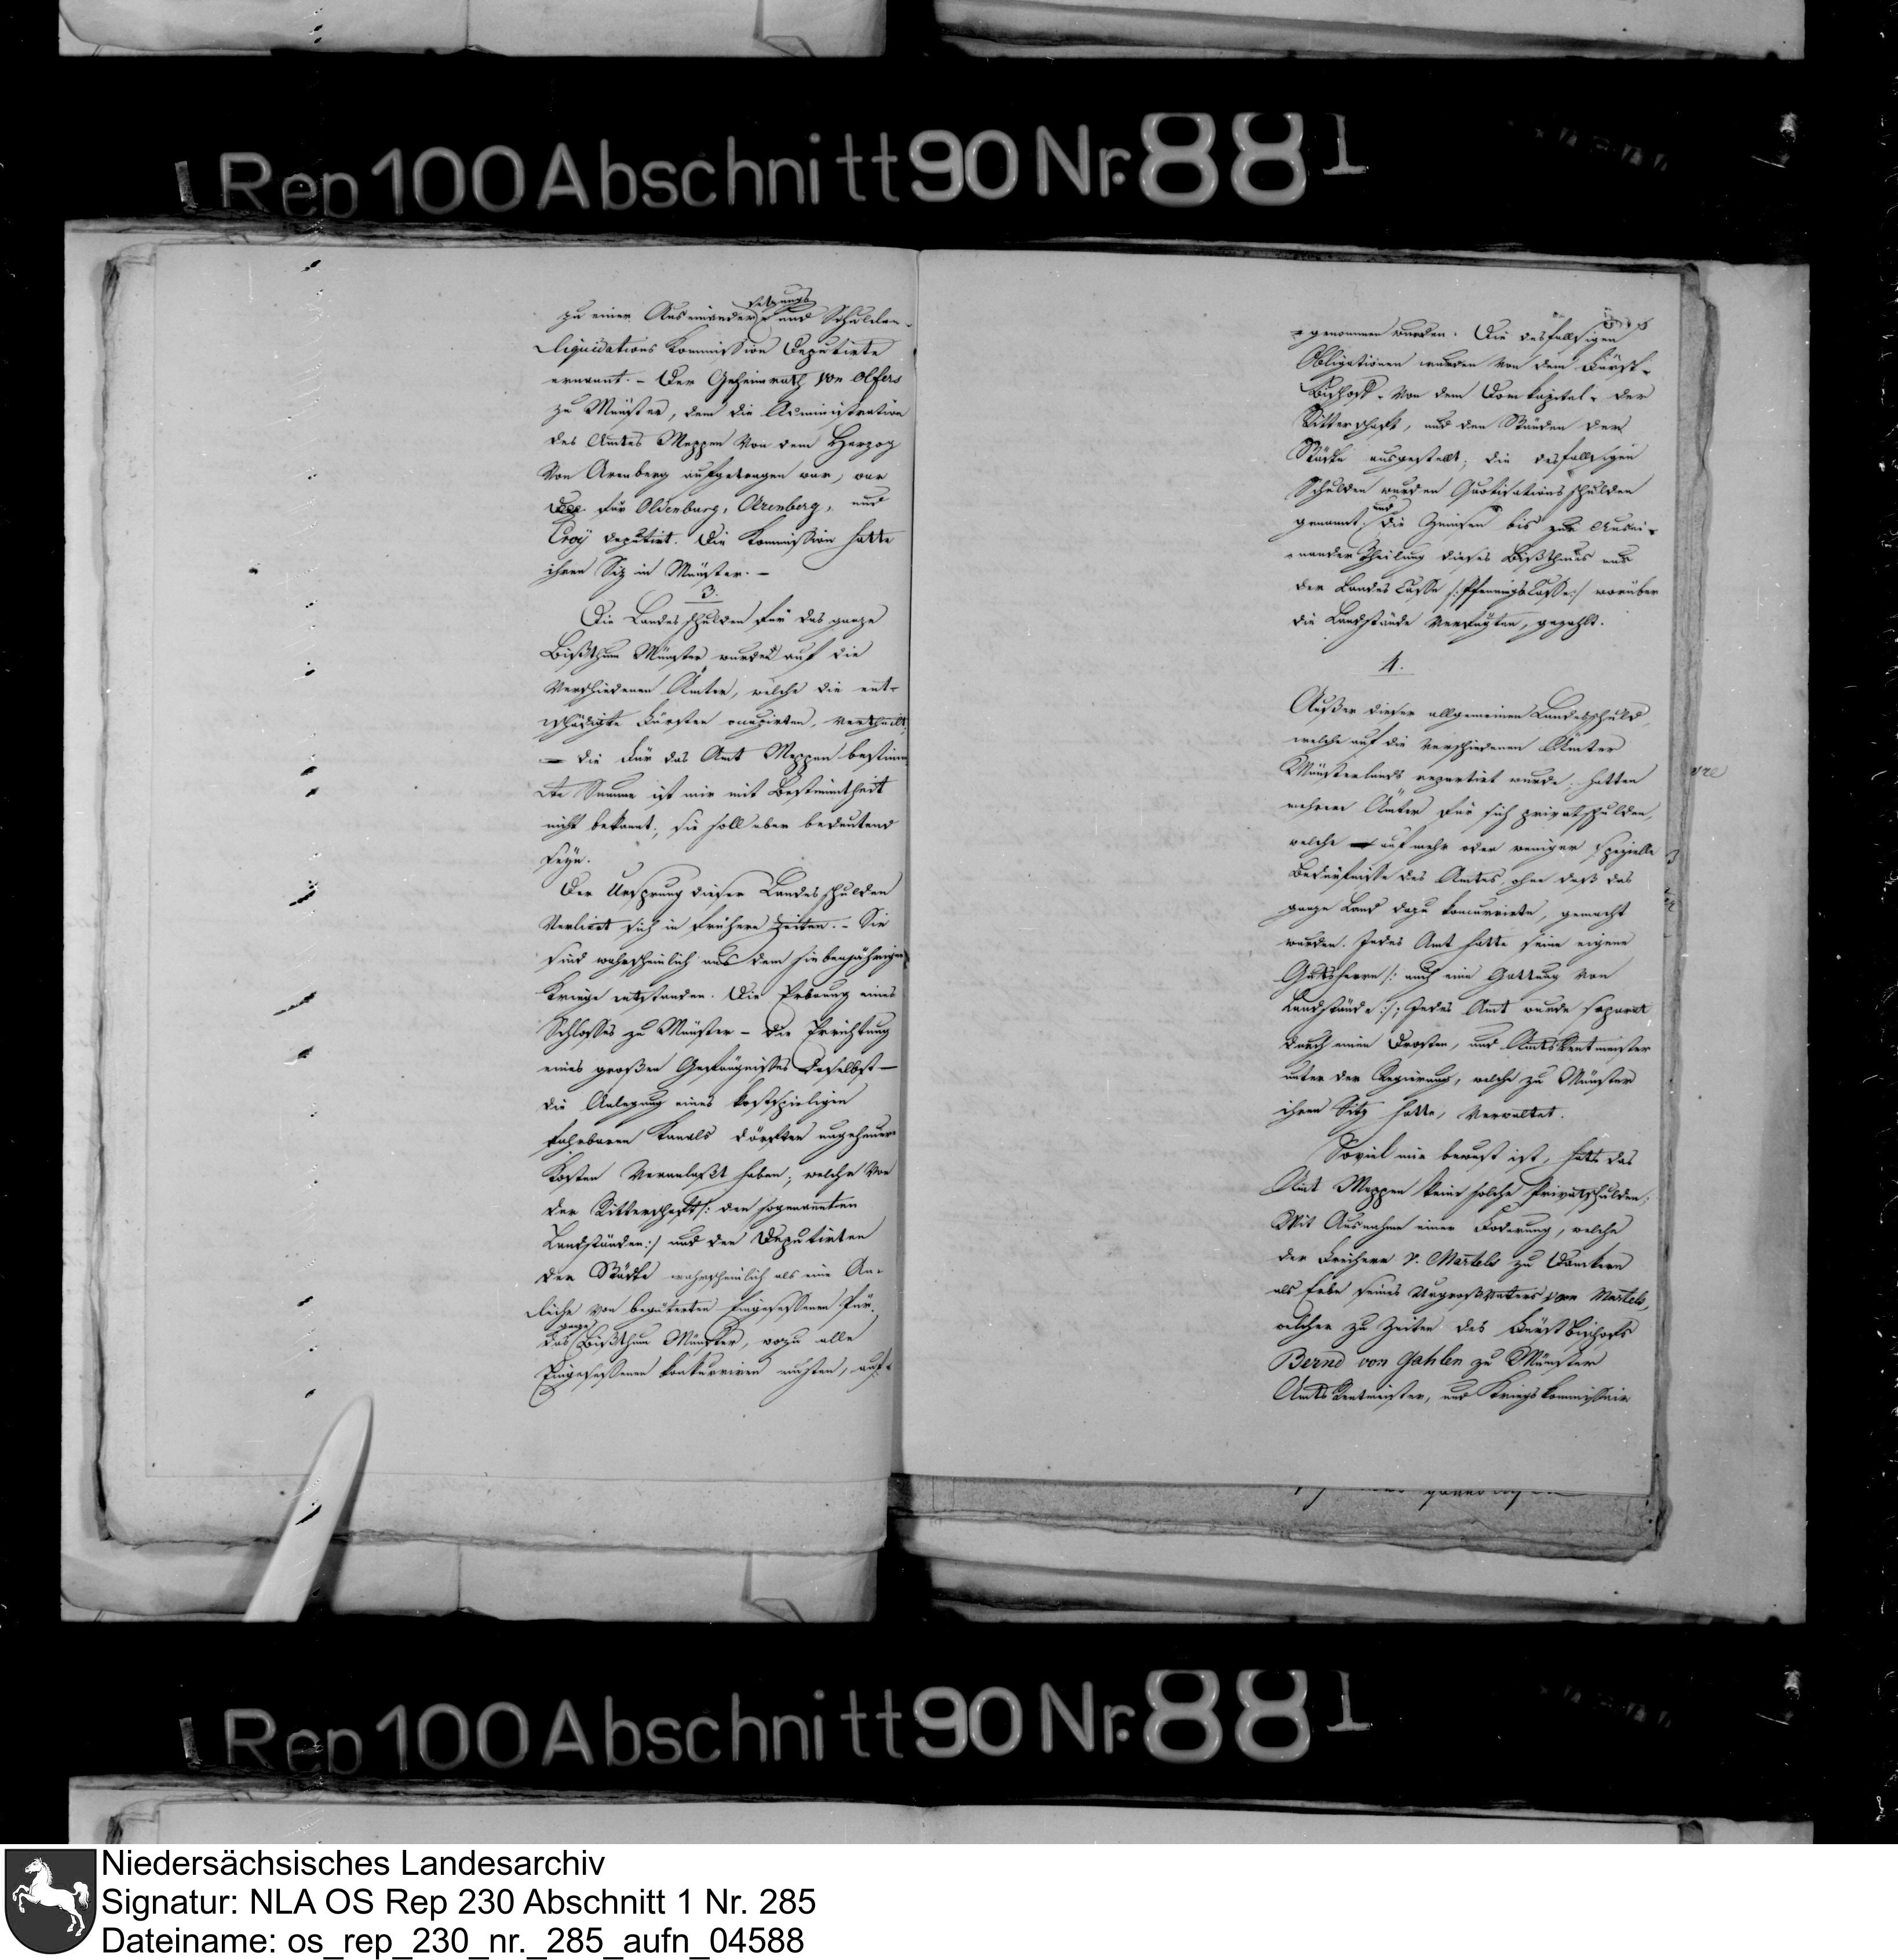 Rep 100 Abschnitt 90 Nr. 881
zu einer Auseinander- setzungs und Schulden-
liquidations Kommission Deputirte
ernannt. – Der Geheimrath von Olfers
zu Münster, dem die Administration
des Amtes Meppen von dem Herzog
von Arenberg aufgetragen war, war
für Oldenburg, Arenberg, und
Croÿ deputirt. Die Kommission hatte
ihren Siz in Münster. –
3.
Die Landesschulden für das ganze
Bißthum Münster wurden auf die
verschiedenen Ämter, welche die ent-
schädigte Fürsten occupirten, vertheilt,
– die für das Amt Meppen bestimm
te Summe ist mir mit Bestimmtheit
nicht bekannt, sie soll aber bedeutend
seyn.
Der Ursprung dieser Landesschulden
verliert sich in frühere Zeiten. – Sie
sind wahrscheinlich aus dem siebenjährigen
Kriege entstanden. Die Erbauung eines
Schlosses zu Münster – die Errichtung
eines großen Gefängnisses daselbst –
die Anlegung eines kostspieligen
fahrbaren Kanals dörften ungeheuere
Kosten veranlaßt haben; welche von
der Ritterschaft /: den sogenannten
Landständen :/ und den Deputirten
der Städte wahrscheinlich als eine An-
leihe von begüterten Eingesessenen für
das ganze Bißthum Münster, wozu alle
Eingesessenen konkurriren mußten, auf-
genommen wurden. Die desfallsigen
Obligationen wurden von dem Fürst-
Bischoff, von dem Domkapitel, der
Ritterschaft, und den Ständen der
Städte ausgestellt; die desfallsigen
Schulden wurden Quotisationsschulden
genannt; und die Zinsen bis zur Ausei-
nander Theilung dieses Bißthums aus
der Landes Casse /: Pfenningscasse :/ worüber
die Landstände verfügten, gezahlt.
4.
Außer dieser allgemeinen Landesschuld
welche auf die verschiedenen Ämter
Münsterlands repartirt wurde, hatten
mehrere Ämter für sich privatschulden,
welche auf mehr oder weniger spezielle
Bedürfnisse des Amtes, ohne daß das
ganze Land dazu konkurrirte, gemacht
wurden. Jedes Amt hatte seine eigene
Gutsherrn /: auch eine Gattung von
Landstände :/; Jedes Amt wurde separat
durch einen Drosten, und Amtsrentmeister
unter der Regierung, welche zu Münster
ihren Sitz hatte, verwaltet.
Soviel mir bewust ist, hatte das
Amt Meppen keine solche Privatschulden;
Mit Ausnahme einer Foderung, welche
der Freiherr v. Martels zu Dankern
als Erbe seines Urgroßvaters von Martels,
welcher zu Zeiten des Fürstbischofs
Bernd von Gahlen zu Münster
Amts Rentmeister, und Kriegskommissair
Rep 100 Abschnitt 90 Nr. 881
Niedersächsisches Landesarchiv
Signatur: NLA OS Rep 230 Abschnitt 1 Nr. 285
Dateiname: os_rep_230_nr._285_aufn_04588